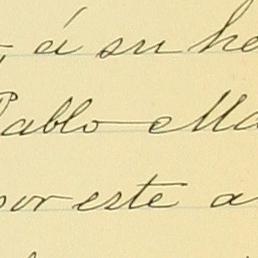 á su he
Pablo Ma
por este a